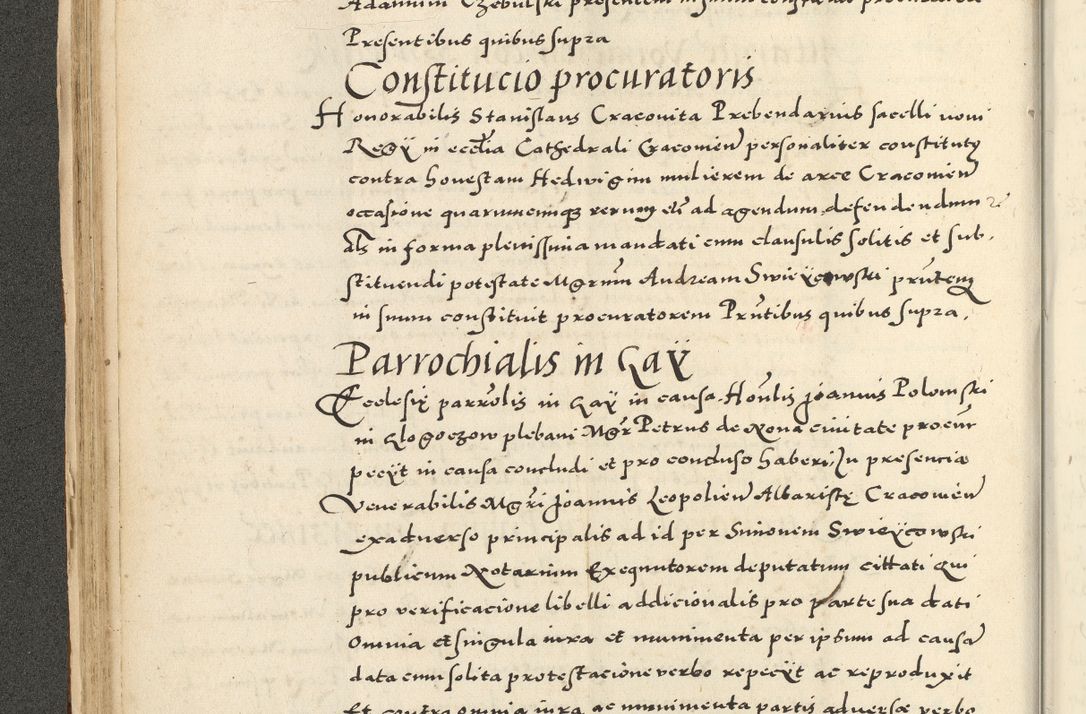 Adamum Czebulski presentem in suum constituit procuratorem
Presentibus quibus supra
Constitucio procuratoris
Honorabilis Stanislaus Cracovita Prebendarius sacelli novi
Regÿ in eccl̃ia Cathedrali Cracovien̄ personaliter constitutꝯ
contra honestam Hedwigim mulierem de arce Cracovien̄
occasione quarumcumqꝫ rerum etc̄ ad agendum defendendum
als in forma plenissima mandati cum clausulis solitis et sub-
stituendi potestate Mgr̄um Andream Swieÿcowski pr̄ntem
in suum constituit procuratorem Pr̄ntibus quibus supra.
Parrochialis in Gaÿ
Ecclesiӕ parrōlis in Gaÿ in causa Hon̄lis Joannis Polomski
in Glogoczow plebani Mgr̄ Petrus de Nona civitate procur̄
pecÿt in causa concludi et pro concluso haberi. In presencia
Venerabilis Mgr̄i Joannis Leopolien̄ Altaristę Cracovien̄
ex adverso principalis ad id per Simonem Swieÿcowski
publicum Notarium Exequutorem deputatum cittati Qui
pro verificacione libelli addicionalis pro parte sua dati
Omnia et singula iura et munimenta per ipsum ad causam̄
data cum solita protestacione verbo repecÿt ac reproduxit
Et contra omnia iura ac munimenta partis adversae verbo